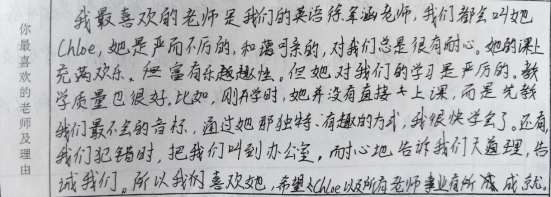 你最喜欢的老师及理由
我最喜欢的老师是我们的英语徐老涵老师，我们都会叫她
Chloe，她是严而不厉的，和蔼可亲的，对我们总是很有耐心。她的课上
充满欢乐、但富有乐趣越性，但她对我们的学习是严厉的。教
学质量也很好。比如，刚开学时，她并没有直接上课，而是先教
我们最不会的音标，通过她那独特、有趣的方式，我很快学会了。还有，
我们犯错时，把我们叫到办公室，而耐心地告诉我们大道理，告
诫我们。所以我们喜欢她，希望Chloe以及所有老师事业有所成就。